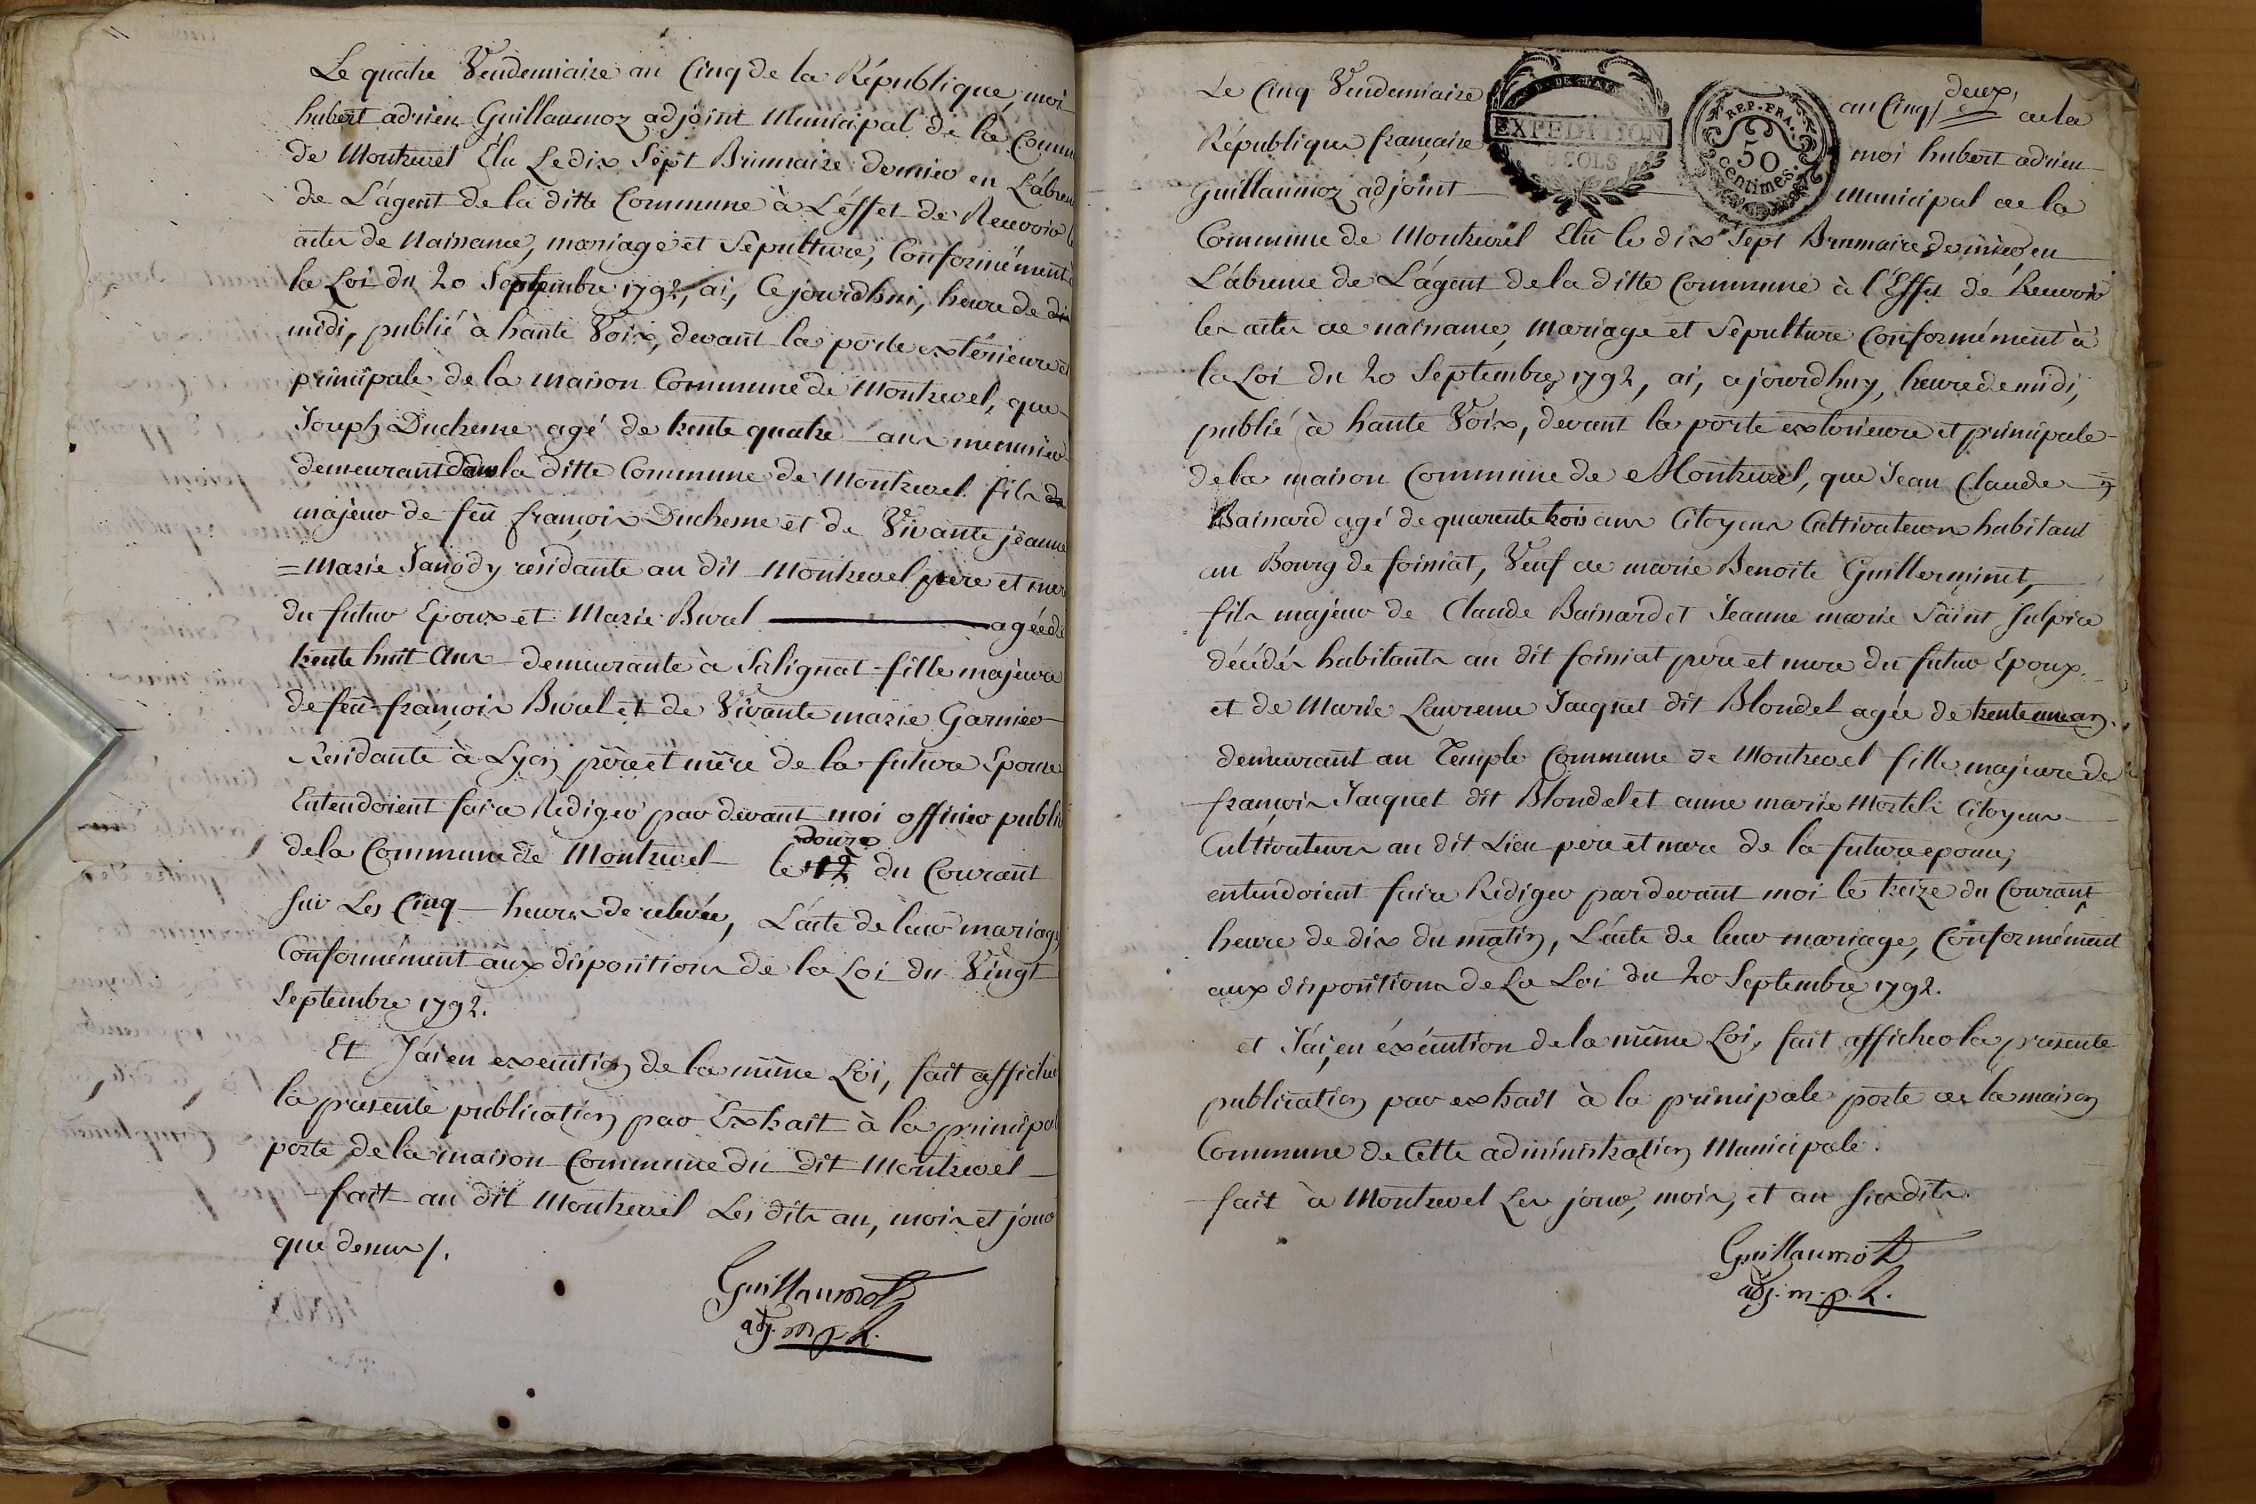 Le quatre Vendemiaire an Cinq de la République, moi
hubert adrien Guillaumoz adjoint Municipal de la Comm
de Montrevel Élu Le dix Sept Brumaire dernier en L'absen
de L'agent de la ditte Commune à L'éffet de Recevoir l
actes de Naissance, mariage et Sépulture, Conformément
la Loi du 20 Septembre 1792, ai, Cejourdhui, heure de
midi, publié à haute Voix, devant la porte extérieure et
principale de la maison Commune de Montrevel, que
Joseph Duchesne agé de trente quatre ans menusier
demeurant dans la ditte Commune de Montrevel fils
majeur de feû françois Duchesne et de Vivante jeanne
= Marie Janody residante au dit Montrevel pere et mere
du futur Epoux et Marie Bural agée de
trente huit ans demeurante à Salignat fille majeure
de feû françois Bural et de Vivante marie Garnier
Residante à Lyon père et mère de la future Epouse
Entendoient faire Rediger par devant moi officier public
de la Commune de Montrevel le 12 douze du Courant
sur Les Cinq heures de relevée, L'acte de leur mariage
Conformément aux dispositions de la Loi du Vingt
Septembre 1792.
Et J'ai en execution de la même Loi, fait afficher
la presente publication par Extrait à la principal
porte de la maison Commune du dit Montrevel
fait au dit Montrevel Les dits an, mois et jour
que dessus /.
Guillaumoz
adj. m.p.l.
Le Cinq Vendemiaire an Cinq deux de la
République française moi hubert adrien
Guillaumoz adjoint Municipal de la
EXPEDITION
SOLS
REP. FRA.
50
centimes.
Commune de Montrevel Elû le dix Sept Brumaire dernier en
L'absence de L'agent de la ditte Commune à l'Effet de Recevoir
les actes de naissance, Mariage et Sépulture Conformément à
la Loi du 20 Septembre 1792, ai, cejourdhuy, heure de midi,
publié à haute Voix, devant la porte exterieure et principale
de la maison Commune de Montrevel, que Jean Claude
Baisnard agé de quarente trois ans Citoyens Cultivateurs habitant
au Bourg de foissiat, Veuf de marie Benoite Guillerminet,
fils majeur de Claude Baisnard et Jeanne marie Saint Sulpice
décédés habitants au dit foissiat père et mere du futur Epoux.
et de Marie Laurence Jacquet dit Blondel agée de trente un an.
demeurant au Temple Commune de Montrevel fille majeure de
françois Jacquet dit Blondel et anne marie Mortel Citoyens
Cultivateurs au dit Lieu pere et mere de la future epouse,
entendoient faire Rediger pardevant moi le treize du Courant
heure de dix du matin, L'acte de leur mariage, Conformément
aux dispositions de La Loi du 20 Septembre 1792.
et J'ai, en éxécution de la même Loi, fait afficher la presente
publication par extrait à la principale porte de la maison
Commune de Cette administration Municipale.
fait à Montrevel Les jour, mois, et an susdits.
Guillaumoz
adj. m.p.l.